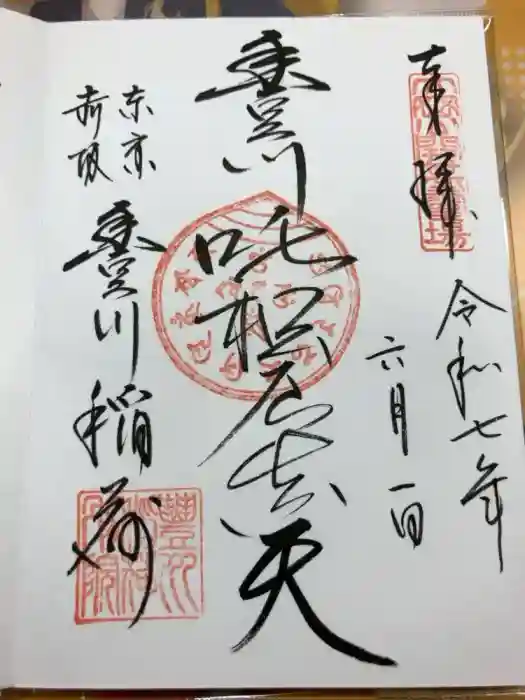 奉拝
令和七年
六月一日
豊川吒枳尼真天
東京
赤坂
豊川稲荷